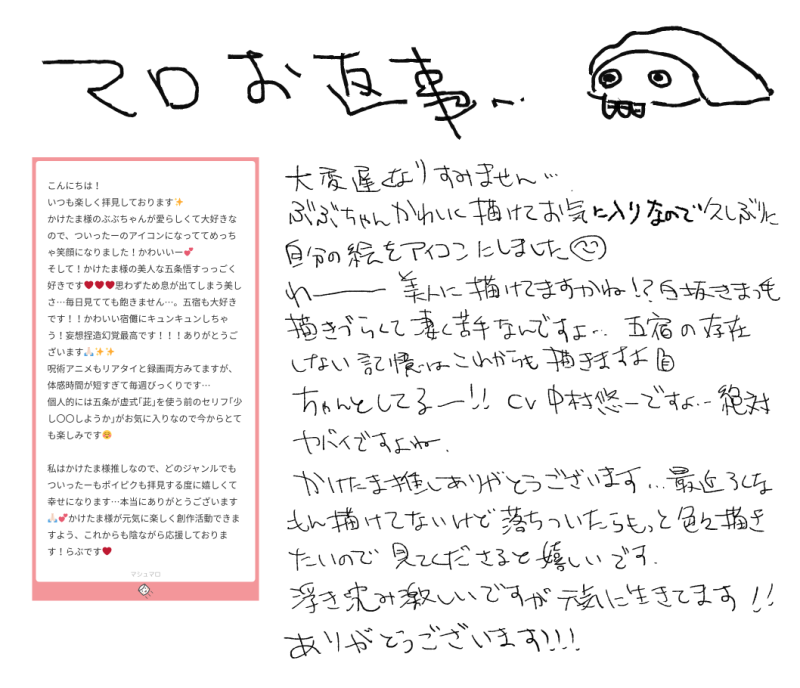 マロお返事…
こんにちは！
いつも楽しく拝見しております✨
かけたま様のぶぶちゃんが愛らしくて大好きな
ので、ついったーのアイコンになっててめっち
ゃ笑顔になりました！かわいいー💕
そして！かけたま様の美人な五条悟すっっごく
好きです❤❤❤思わずため息が出てしまう美し
さ…毎日見てても飽きません…。五宿も大好き
です！！かわいい宿儺にキュンキュンしちゃ
う！妄想捏造幻覚最高です！！！ありがとうご
ざいます🙏🏻✨✨
呪術アニメもリアタイと録画両方みてますが、
体感時間が短すぎて毎週びっくりです…
個人的には五条が虚式｢茈｣を使う前のセリフ｢少
し〇〇しようか｣がお気に入りなので今からとて
も楽しみです☺
私はかけたま様推しなので、どのジャンルでも
ついったーもポイピクも拝見する度に嬉しくて
幸せになります…本当にありがとうございます
🙏🏻💕かけたま様が元気に楽しく創作活動できま
すよう、これからも陰ながら応援しておりま
す！らぶです❤
マシュマロ
大変遅なりすみません…
ぶぶちゃんかわいに描けてお気に入りなので久しぶりに
自分の絵をアイコンにしました
わーー 美人に描けてますかね！？五条さまっても
描きづらくて凄く苦手なんですよ… 五宿の存在
しない記憶はこれからも描きますよ
ちゃんとしてるー!! CV中村悠一ですよ… 絶対
ヤバイですよね.
かけたま推しありがとうございます…最近ろくな
もん描けてないけど落ちついたらもっと色々描き
たいので見てくださると嬉しいです.
浮き沈み激しいですが元気に生きてます!!
ありがとうございます!!!